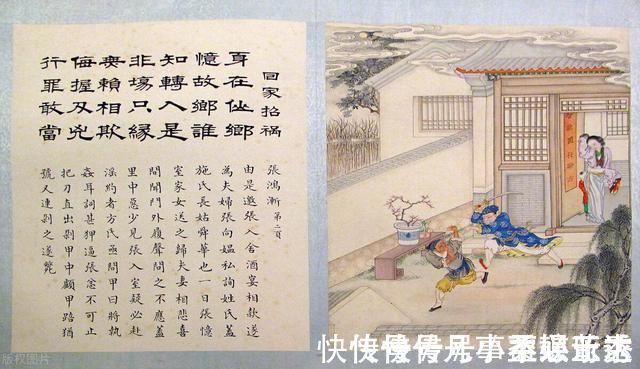 回家招禍
身在仙鄉
憶故鄉誰
知轉入是
非場只緣
無賴相欺
侮握刃兇
行罪敢當
張鴻漸 第二頁
由是邀張入舍酒宴相款遂
為夫婦張向媪私詢姓氏蓋
施氏長姑舜華也一日張憶
室家女送之歸夫妻相悲喜
間聞門外履聲問之不應蓋
里中惡少見張入室疑必赴
淫約者方氏亟問甲曰將執
姦耳詞甚狎逼張忿不可止
把刀直出剁甲中顱甲踣猶
號又連剁之遂斃
版权图片